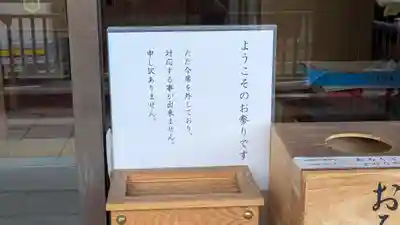 ようこそのお参りです
ただ今席を外しており、
対応する事が出来ません。
申し訳ありません。